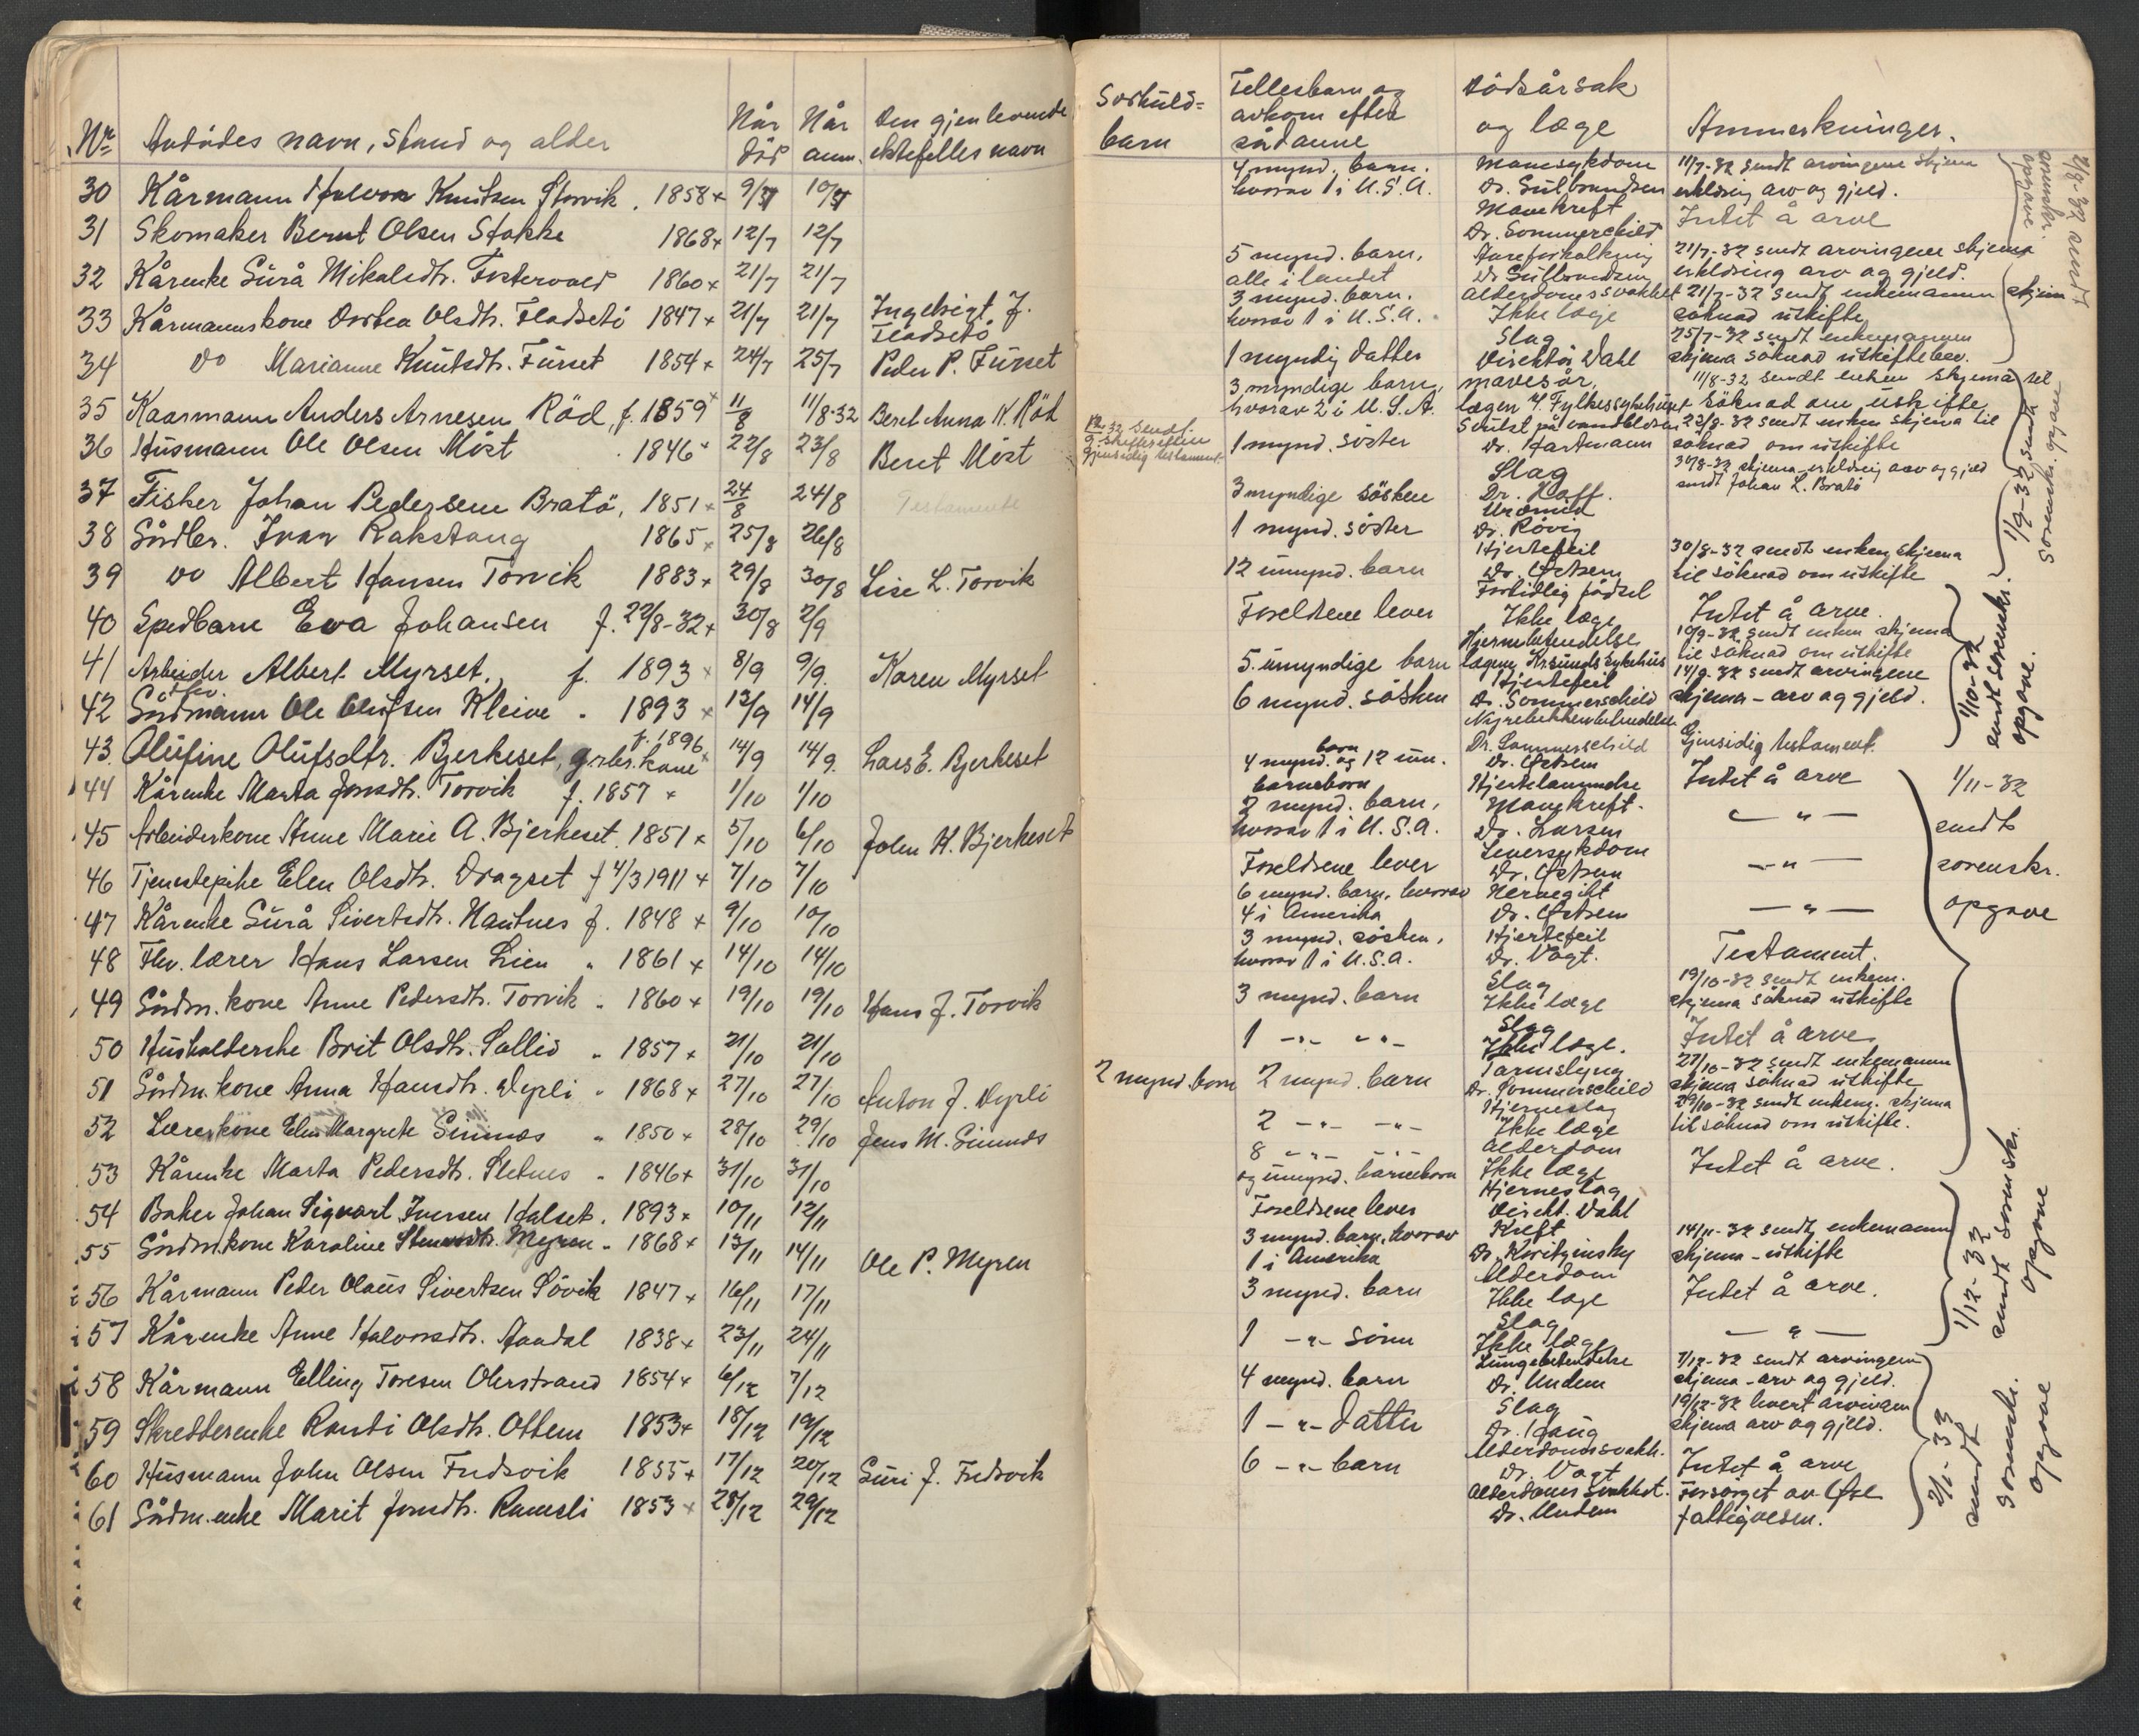 Nr. Avdødes navn, stand og alder Når død Når anm. Den gjenlevende ektefelles navn Særkuld= barn Fellesbarn og avkom efter sådanne Dødsårsak og læge Anmerkninger.
30 Kårmann Halvor Knutsen Storvik. 1858 + 9/7 10/7 4 mynd. barn. hvorav 1 i U.S.A. Mavesykdom Dr. Gulbrandsen 11/7-32 sendt arvingene skjema erklæring arv og gjeld.
31 Skomaker Bernt Olsen Stokke 1868 + 12/7 12/7 Mavekreft Dr. Sommerschild Intet å arve
32 Kårenke Gurå Mikalsdtr. Fostervold 1860 + 21/7 21/7 5 mynd. barn, alle i landet Åreforkalkning Dr. Gulbrandsen 21/7-32 sendt arvingene skjema erklæring arv og gjeld.
33 Kårmannskone Dortea Olsdtr. Fladsetö 1847 + 21/7 21/7 Ingebrigt J. Fladsetö 3 mynd. barn. hvorav 1 i U.S.A. Alderdomssvakhet Ikke læge 21/7-32 sendt enkemannen skjema søknad uskifte
34 do Marianne Knutsdtr. Furset 1854 + 24/7 25/7 Peder P. Furset 1 myndig datter Slag Direktör Dahl 25/7-32 sendt enkemannen skjema søknad uskiftebev.
2/8-32 sendt sorenskr. opgave
35 Kaarmann Anders Arnesen Röd, f. 1859 + 11/8 11/8-32 Beret Anna K. Röd 3 myndige barn, hvorav 2 i U.S.A. mavesår, lægen v. Fylkessykehuset 11/8-32 sendt enken skjema til søknad om uskifte
36 Husmann Ole Olsen Möst 1846 + 22/8 23/8 Beret Möst gjensidig testament. 1 mynd. söster Dr. Hartmann 23/8-32 sendt enken skjema til søknad om uskifte
37 Fisker Johan Pedersen Bratö, 1851 + 24/8 24/8 Testamente 3 myndige søsken Slag Dr. Kaff. 30/8-32 skjema erklæring arv og gjeld sendt Johan L. Bratö
38 Gårdbr. Ivar Rakstang 1865 + 25/8 26/8 1 mynd. söster Uræmid Dr. Røvig
39 do Albert Hansen Torvik 1883 + 29/8 30/8 Lise L. Torvik 12 umynd. barn Hjertefeil Dr. Østrem 30/8-32 sendt enken skjema til søknad om uskifte
1/9-32 sendt sorenskr. opgave
40 Spedbarn Eva Johansen f. 22/8-32 + 30/8 2/9 Foreldrene lever Fortidlig födsel Ikke læge Intet å arve.
41 Arbeider Albert Myrset, f. 1893 + 8/9 9/9. Karen Myrset 5 umyndige barn Hjernebetendelse lægene Kr.sunds sykehus 10/9-32 sendt enken skjema til søknad om uskifte
42 Gårdmann Ole Olufsen Kleive " 1893 + 13/9 14/9 6 mynd. søsken Hjertefeil Dr. Sommerschild 14/9-32 sendt arvingene skjema - arv og gjeld.
43. Olufine Olufsdtr. Bjerkeset, grbr. kone f. 1896 + 14/9 14/9. Lars E. Bjerkeset Nyrebekkenbetendelse Dr. Sommerschild Gjensidig testament.
1/10-32 sendt sorenskr. opgave.
44 Kårenke Marta Jonsdtr. Torvik f. 1857 + 1/10 1/10 4 mynd. barn og 12 um. barnebarn Dr. Østrem Hjertelammelse Intet å arve
45 Arbeiderkone Anne Marie A. Bjerkeset. 1851 + 5/10 6/10 John H. Bjerkeset 7 mynd. barn, hvorav 1 i U.S.A. Mavekreft. Dr. Larsen — " —
46 Tjenestepike Elen Olsdtr. Dragset f 4/3 1911 + 7/10 7/10 Foreldrene lever Leversykdom Dr. Østrem — " —
47 Kårenke Gurå Sivertsdtr. Hautnes f. 1848 + 9/10 10/10 6 mynd. barn, hvorav 4 i Amerika Nervegikt Dr. Østrem — " —
48 Fhv. lærer Hans Larsen Lien " 1861 + 14/10 14/10 3 mynd. søsken, hvorav 1 i U.S.A. Hjertefeil Dr. Vogt. Testament.
49 Gårdm. kone Anne Pedersdtr. Torvik " 1860 + 19/10 19/10 Hans J. Torvik 3 mynd. barn Slag Ikke læge 19/10-32 sendt enkem. skjema søknad uskifte
50 Husholderske Brit Olsdtr. Sollid " 1857 + 21/10 21/10 1 — " — — " — Slag Ikke læge. Intet å arve
51 Gårdm. kone Anna Hansdtr. Dyrli " 1868 + 27/10 27/10 Anton J. Dyrli 2 mynd. barn 2 mynd. barn Tarmslyng Dr. Sommerschild 27/10-32 sendt enkemann skjema søknad uskifte
52 Lærerkone Elen Margrete Gimnæs " 1850 + 28/10 29/10 Jens M. Gimnæs 2 — " — — " — Hjerneslag Ikke læge 29/10-32 sendt enkem. skjema til søknad om uskifte.
53 Kårenke Marta Pedersdtr. Sletnes " 1846 + 31/10 31/10 8 — " — — " — og umynd. barnebarn Alderdom Ikke læge Intet å arve.
1/11-32 sendt sorenskr. opgave
54 Baker Johan Sigvart Iversen Halset. 1893 + 10/11 12/11 Foreldrene lever Hjerneslag Direkt. Dahl
55 Gårdm.kone Karoline Stensdtr. Myren " 1868 + 13/11 14/11 Ole P. Myren 3 mynd. barn, hvorav 1 i Amerika Kreft Dr. Koritzinsky 14/11-32 sendt enkemann skjema - uskifte
56 Kårmann Peder Olaus Sivertsen Sövik 1847 + 16/11 17/11 3 mynd. barn Alderdom Ikke læge Intet å arve.
57 Kårenke Anne Halvorsdtr. Aandal 1838 + 23/11 24/11 1 — " — sönn Slag Ikke læge — " —
1/12-32 sendt sorenskr. opgave
58 Kårmann Elling Toresen Oterstrand 1854 + 6/12 7/12 4 mynd. barn Lungebetendelse Dr. Undem 7/12-32 sendt arvingene skjema - arv og gjeld.
59 Skredderenke Randi Olsdtr. Ottem 1853 + 18/12 19/12 1 — " — datter Slag Dr. Haug 19/12-32 levert arvingen skjema arv og gjeld.
60 Husmann John Olsen Fredsvik 1855 + 17/12 20/12 Guri J. Fredsvik 6 — " — barn Alderdomssvakh. Dr. Vogt Intet å arve
61 Gårdm.enke Marit Jonsdtr. Ramsli 1853 + 28/12 29/12 Alderdoms svakhet. Dr. Undem Forsørget av Øre fattigvesen.
2/1-33 sendt sorenskr. opgave